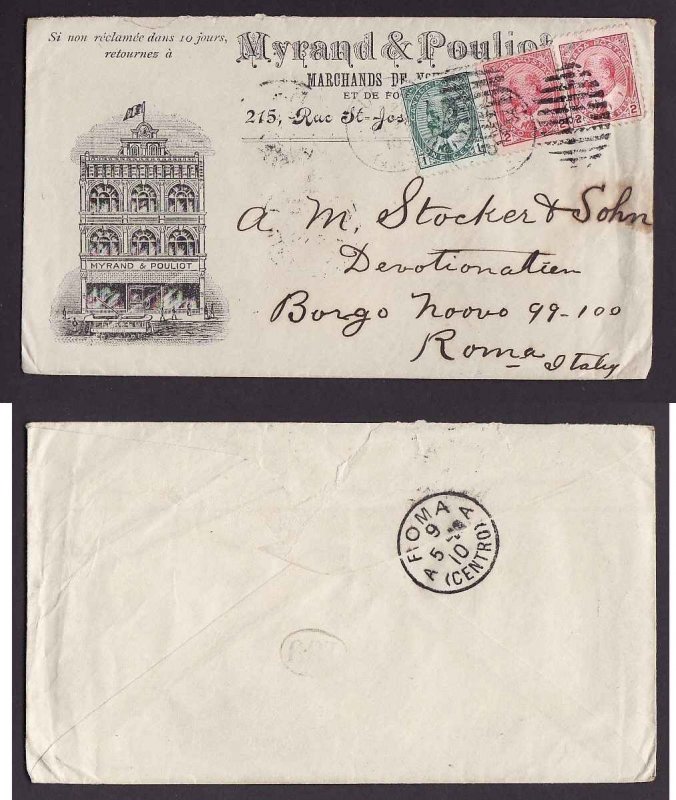 Si non réclamée dans 10 jours,
retournez à
Myrand & Pouliot
MARCHANDS DE
ET DE
215, Rue
MYRAND & POULIOT
1
2
2
A M. Stocker & Sohn
Devotionatien
Borgo Noovo 99-100
Roma
Italy
ROMA
9
5
10
(CENTRO)